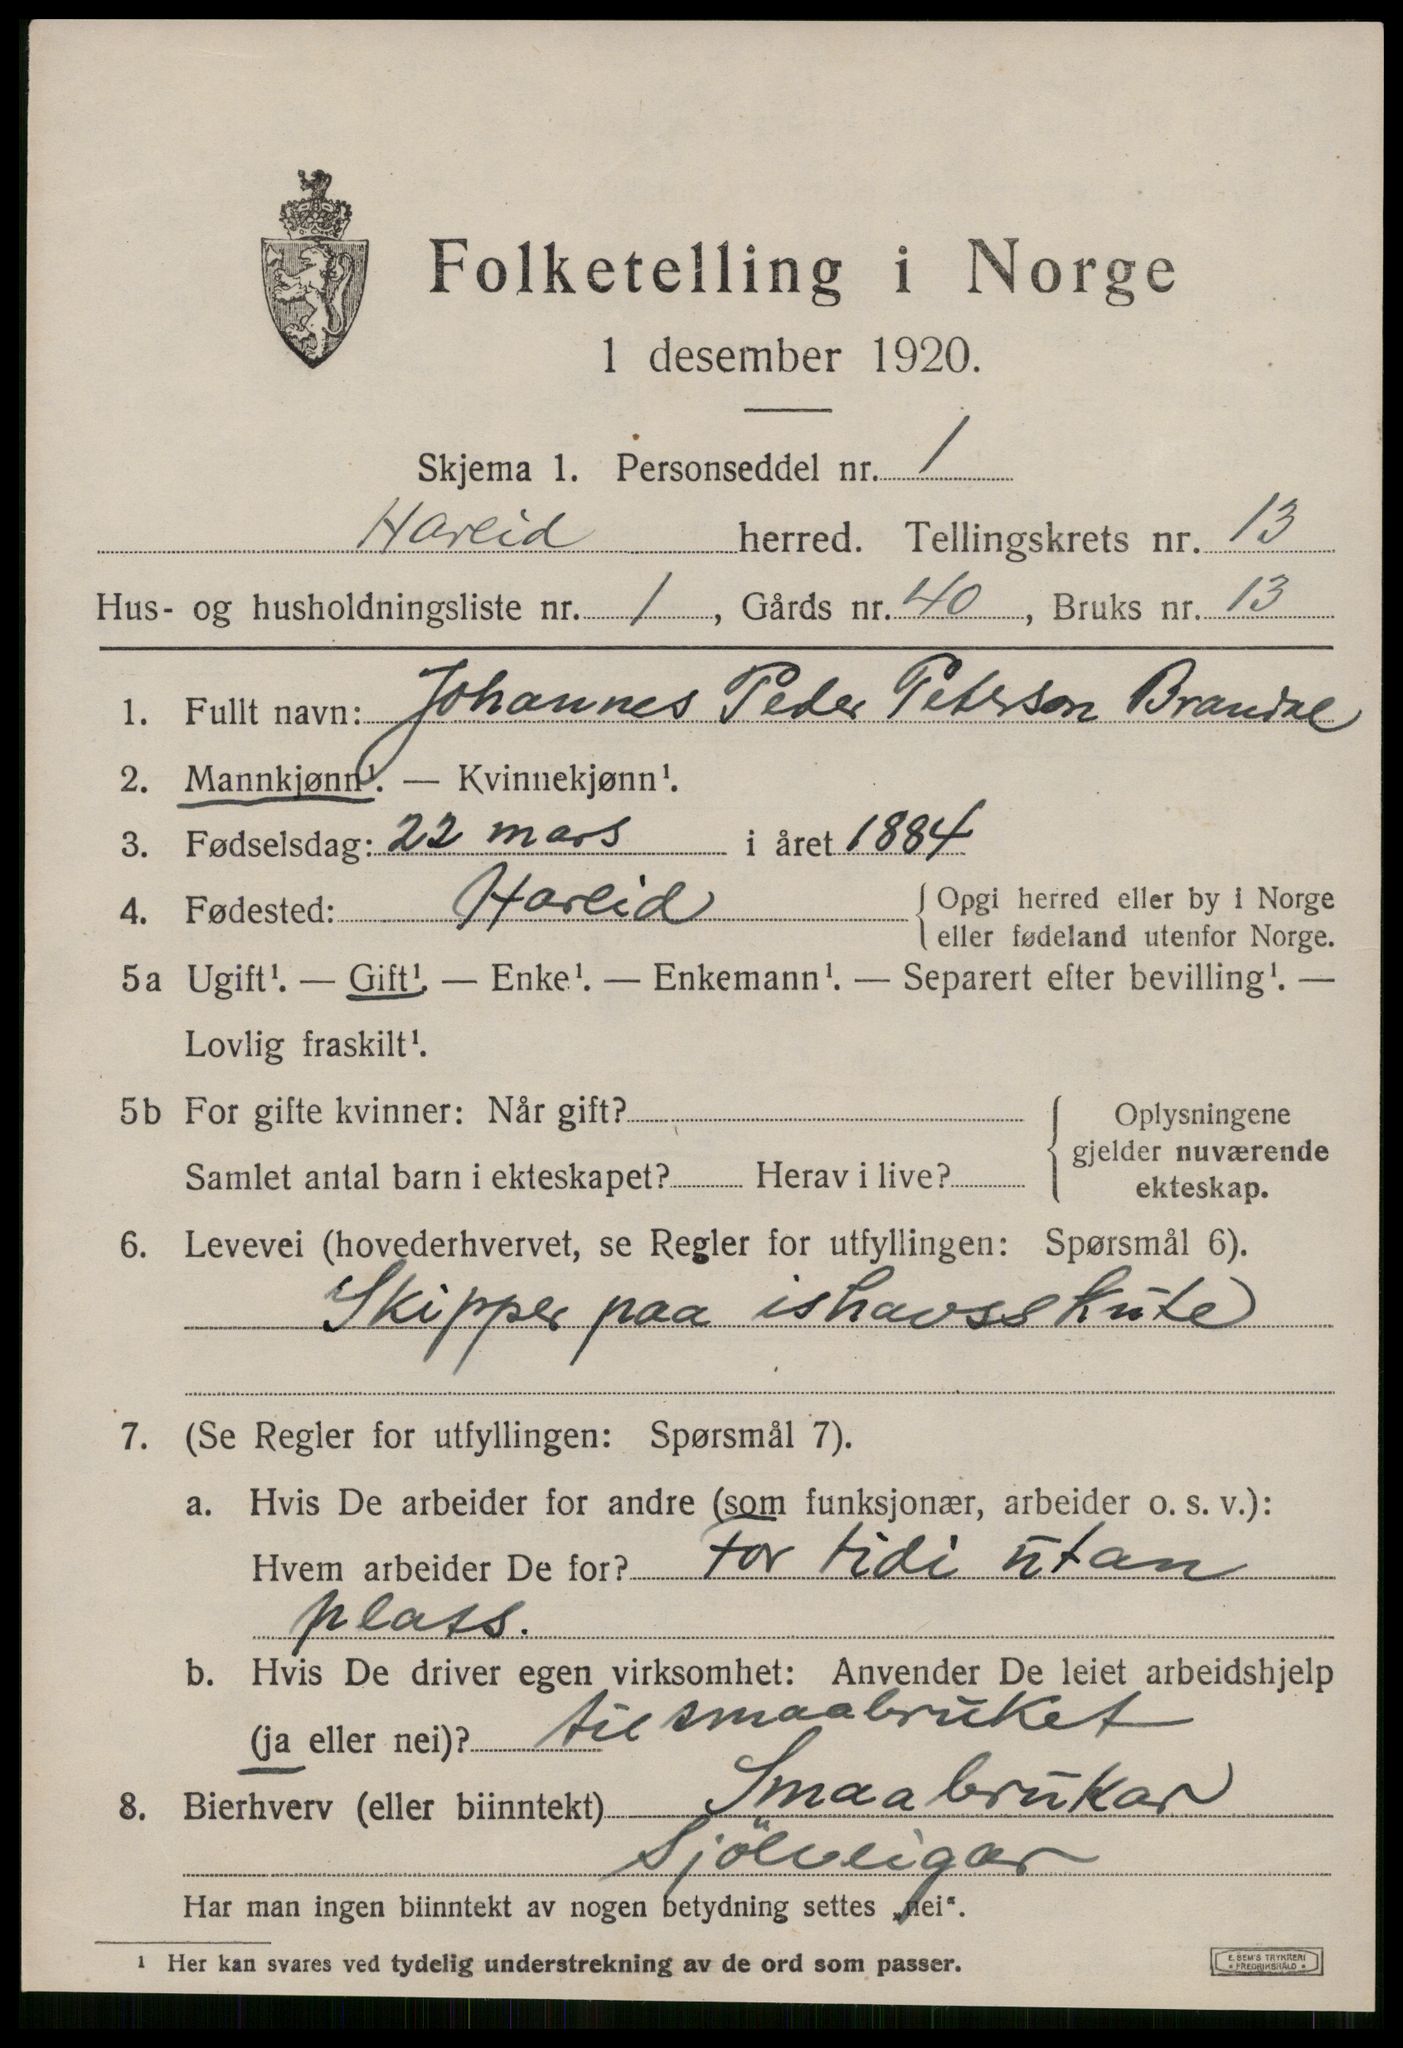 Folketelling i Norge
1 desember 1920.
Skjema 1. Personseddel nr. 1
Hareid herred. Tellingskrets nr. 13
Hus- og husholdningsliste nr. 1, Gårds nr. 40, Bruks nr. 13
1. Fullt navn: Johannes Peder Peterson Brandal
2. Mannkjønn¹. — Kvinnekjønn¹.
3. Fødselsdag: 22 mars i året 1884
4. Fødested: Hareid { Opgi herred eller by i Norge
eller fødeland utenfor Norge.
5a Ugift¹. — Gift¹. — Enke¹. — Enkemann¹. — Separert efter bevilling¹. —
Lovlig fraskilt¹.
5b For gifte kvinner: Når gift?
Samlet antal barn i ekteskapet? Herav i live?
Oplysningene
gjelder nuværende
ekteskap.
6. Levevei (hovederhvervet, se Regler for utfyllingen: Spørsmål 6).
Skipper paa ishavsskute
7. (Se Regler for utfyllingen: Spørsmål 7).
a. Hvis De arbeider for andre (som funksjonær, arbeider o. s. v.):
Hvem arbeider De for? For tidi utan
plass.
b. Hvis De driver egen virksomhet: Anvender De leiet arbeidshjelp
(ja eller nei)? til smaabruket
8. Bierhverv (eller biinntekt) Smaabrukar
Sjölveigar
Har man ingen biinntekt av nogen betydning settes „nei“.
¹ Her kan svares ved tydelig understrekning av de ord som passer.
E. SEM'S TRYKKERI
• FREDRIKSHALD •